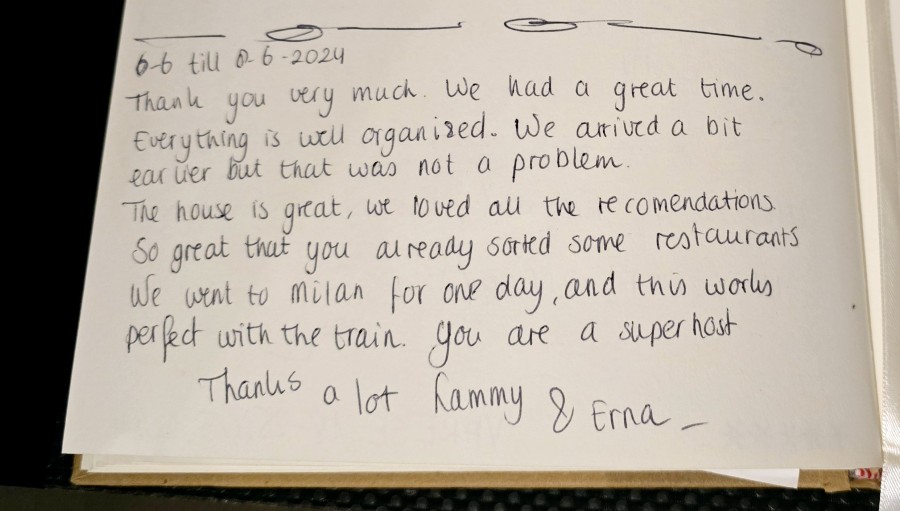 6-6 till 8-6-2024
Thank you very much. We had a great time.
Everything is well organised. We arrived a bit
earlier but that was not a problem.
The house is great, we loved all the recomendations.
So great that you already sorted some restaurants
We went to Milan for one day, and this works
perfect with the train. You are a superhost
Thanks a lot & Erna